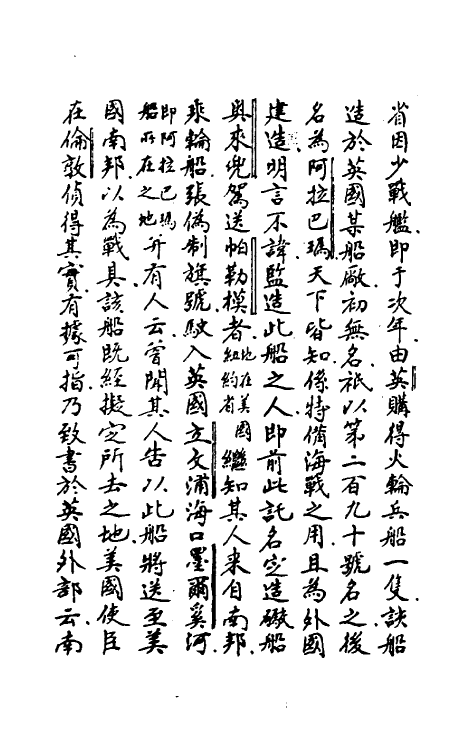 省因少戰艦即于次年由英購得火輪兵船一隻該船
造於英國某船廠初無名祇以第二百九十號名之後
名為阿拉巴瑪天下皆知係特備海戰之用且為外國
建造明言不諱監造此船之人即前此託名定造礮船
奧來兜駕送帕勒模者此在美國紐約省繼知其人來自南邦
乘輪船張偽制旗號駛入英國立文浦海口墨爾奚河
即阿拉巴瑪船所在之地并有人云嘗聞其人告以此船將送至美
國南邦以為戰具該船既經擬定所去之地美國使臣
在倫敦偵得其實有據可指乃致書於英國外部云南